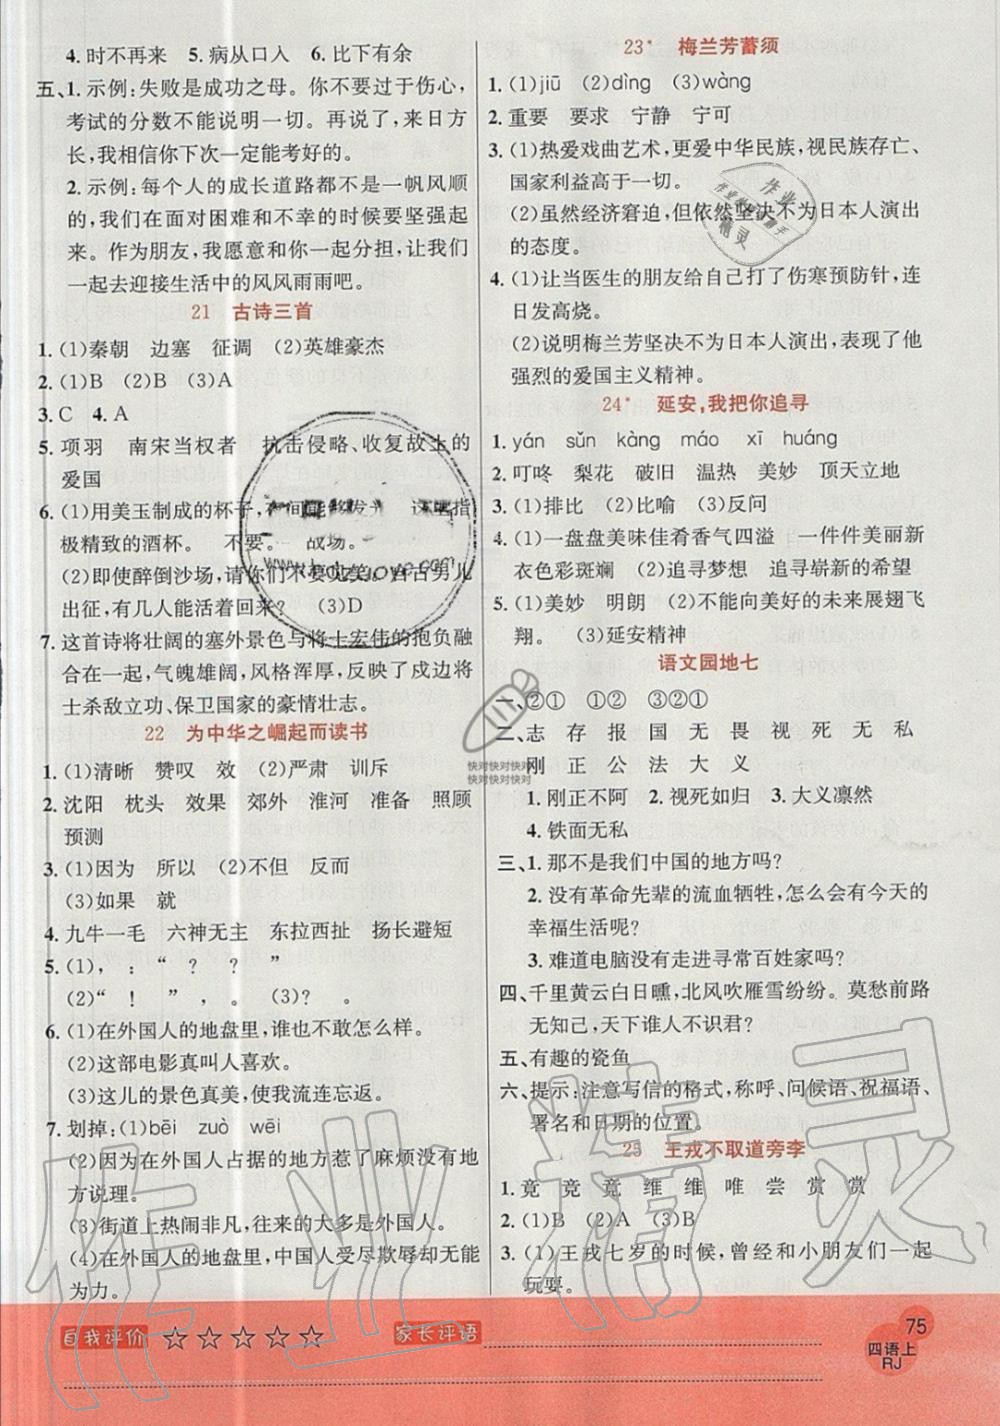 4. 时不再来　5. 病从口入　6. 比下有余
五、1. 示例:失败是成功之母。你不要过于伤心,
考试的分数不能说明一切。再说了,来日方
长,我相信你下次一定能考好的。
2. 示例:每个人的成长道路都不是一帆风顺
的,我们在面对困难和不幸的时候要坚强起
来。作为朋友,我愿意和你一起分担,让我们
一起去迎接生活中的风风雨雨吧。
21　古诗三首
1. (1)秦朝　边塞　征调　(2)英雄豪杰
2. (1)B　(2)B　(3)A
3. C　4. A
5. 项羽　南宋当权者　抗击侵略、收复故土的
爱国
6. (1)用美玉制成的杯子,
极精致的酒杯。　不要。　战场。
(2)即使醉倒沙场,请你们不要见笑。自古男儿
出征,有几人能活着回来?　(3)D
7. 这首诗将壮阔的塞外景色与将士宏伟的抱负融
合在一起,气魄雄阔,风格浑厚,反映了戍边将
士杀敌立功、保卫国家的豪情壮志。
22　为中华之崛起而读书
1. (1)清晰　赞叹　效　(2)严肃　训斥
2. 沈阳　枕头　效果　郊外　淮河　准备　照顾
预测
3. (1)因为　所以　(2)不但　反而
(3)如果　就
4. 九牛一毛　六神无主　东拉西扯　扬长避短
5. (1),　:　“　?　?　”
(2)“　!　”　,　。　(3)?　。
6. (1)在外国人的地盘里,谁也不敢怎么样。
(2)这部电影真叫人喜欢。
(3)这儿的景色真美,使我流连忘返。
7. 划掉:(1)bēi　zuò　wēi
(2)因为在外国人占据的地方惹了麻烦没有地
方说理。
(3)街道上热闹非凡,往来的大多是外国人。
(4)在外国人的地盘里,中国人受尽欺辱却无能
为力。
23*　梅兰芳蓄须
1. (1)jiū　(2)dìng　(3)wàng
2. 重要　要求　宁静　宁可
3. (1)热爱戏曲艺术,更爱中华民族,视民族存亡、
国家利益高于一切。
(2)虽然经济窘迫,但依然坚决不为日本人演出
的态度。
4. (1)让当医生的朋友给自己打了伤寒预防针,连
日发高烧。
(2)说明梅兰芳坚决不为日本人演出,表现了他
强烈的爱国主义精神。
24*　延安,我把你追寻
1. yán　sǔn　kàng　máo　xī　huáng
2. 叮咚　梨花　破旧　温热　美妙　顶天立地
3. (1)排比　(2)比喻　(3)反问
4. (1)一盘盘美味佳肴香气四溢　一件件美丽新
衣色彩斑斓　(2)追寻梦想　追寻崭新的希望
5. (1)美妙　明朗　(2)不能向美好的未来展翅飞
翔。　(3)延安精神
语文园地七
一、②①　①②　③②①
二、志　存　报　国　无　畏　视　死　无　私
刚　正　公　法　大　义
1. 刚正不阿　2. 视死如归　3. 大义凛然
4. 铁面无私
三、1. 那不是我们中国的地方吗?
2. 没有革命先辈的流血牺牲,怎么会有今天的
幸福生活呢?
3. 难道电脑没有走进寻常百姓家吗?
四、千里黄云白日曛,北风吹雁雪纷纷。莫愁前路
无知己,天下谁人不识君?
五、有趣的瓷鱼
六、提示:注意写信的格式,称呼、问候语、祝福语、
署名和日期的位置。
25　王戎不取道旁李
1. 竟　竞　竟　维　维　唯　尝　赏　赏
2. (1)B　(2)A　(3)B
3. (1)王戎七岁的时候,曾经和小朋友们一起
玩耍。
自我评价　☆☆☆☆☆　家长评语
75
四语上
RJ